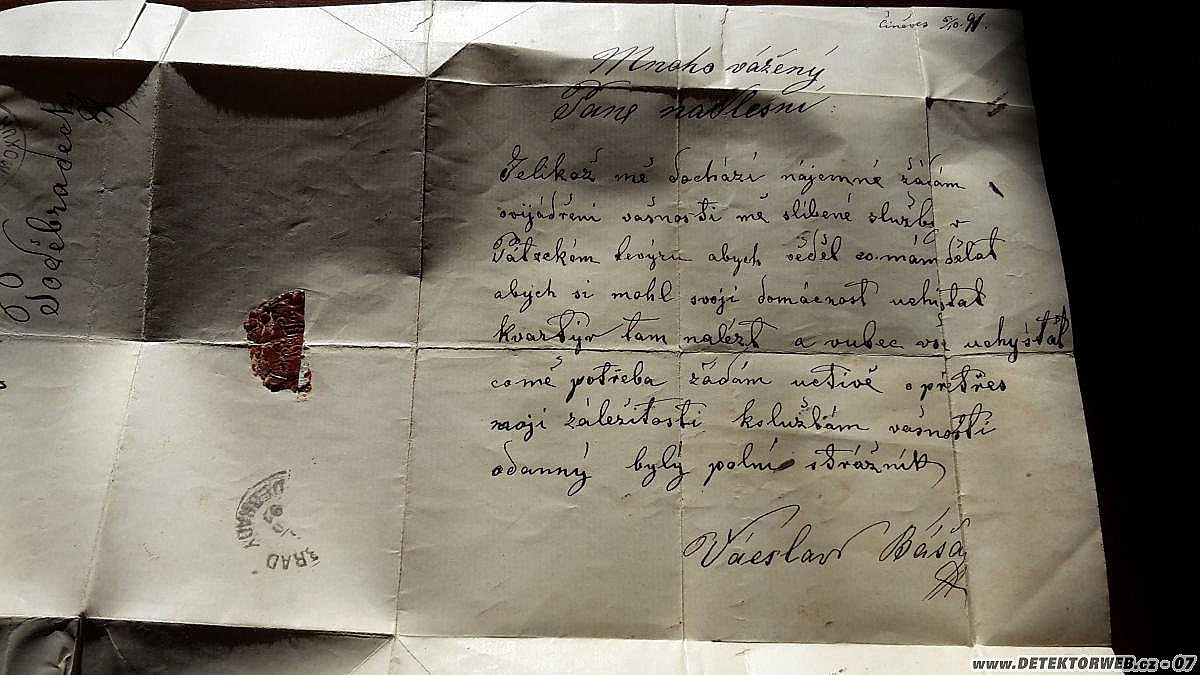 Činěves 5/10. 91.
Mnoho vážený
Pane nadlesní
Jelikož mě dochází nájemné žádám
ovijádření vašnosti mě slíbené službi v
Páteckém revýru abych věděl co mám dělat
abych si mohl svoji domácnost uchistat
kvartýr tam nalézt a vubec vše uchyštat
comě potřeba žádám uctivě o přetřes
moji záležitosti kslužbám vašnosti
odanný bylý polní strážník
Václav Básá
Poděbradech
www.DETEKTORWEB.cz - 07